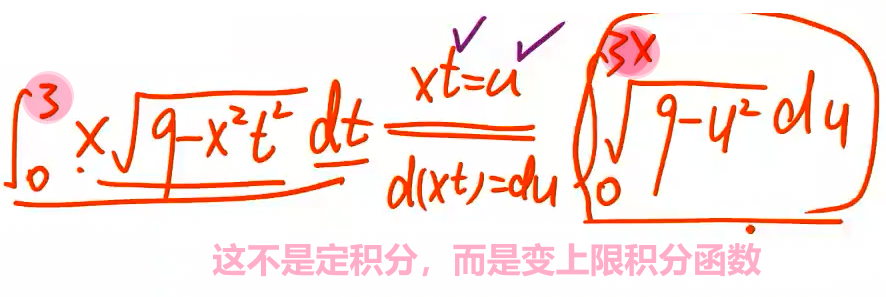 ∫₀³ x√(9-x²t²) dt \xlongequal[d(xt)=du]{xt=u} ∫₀³ˣ √(9-u²) du
这不是定积分，而是变上限积分函数